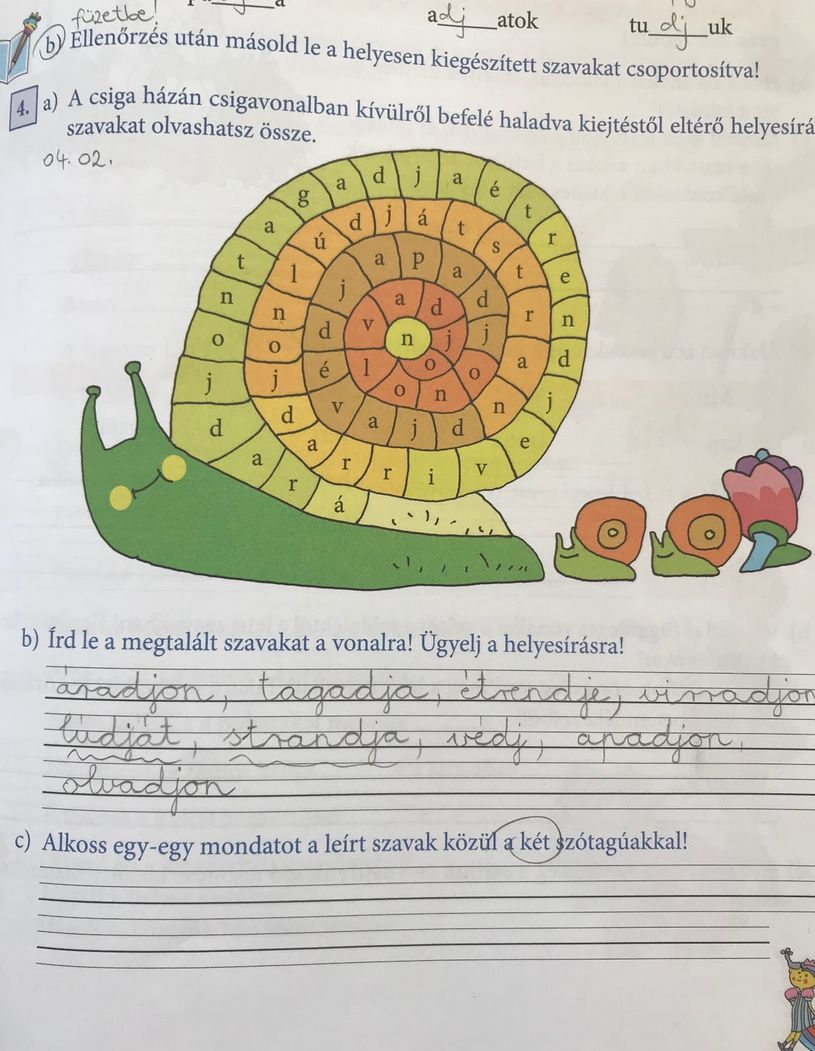 füzetbe!
adj___atok tu_dj_uk
b) Ellenőrzés után másold le a helyesen kiegészített szavakat csoportosítva!
4. a) A csiga házán csigavonalban kívülről befelé haladva kiejtéstől eltérő helyesírá
szavakat olvashatsz össze.
04. 02.
á r a d j o n t a g a d j a é t r e n d j e v i r r a d j o n l ú d j á t s t r a n d j a v é d j a p a d j o n o l v a d j o n
b) Írd le a megtalált szavakat a vonalra! Ügyelj a helyesírásra!
áradjon, tagadja, étrendje, virradjon
lúdját, strandja, védj, apadjon,
olvadjon
c) Alkoss egy-egy mondatot a leírt szavak közül a két szótagúakkal!